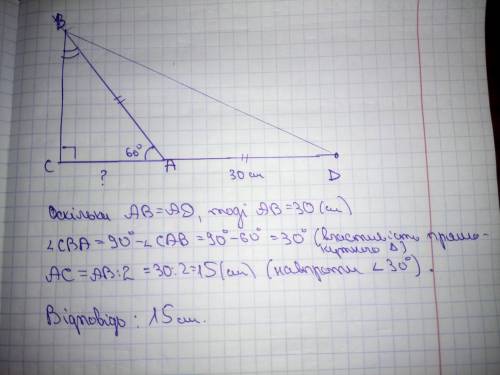 B
60°
C
A
?
30 см
D
Оскільки AB=AD, тоді AB=30 (см)
∠CBA=90°-∠CAB=90°-60°=30° (властивість прямо-
кутного Δ)
AC=AB:2=30:2=15 (см) (навпроти ∠30°).
Відповідь: 15 см.